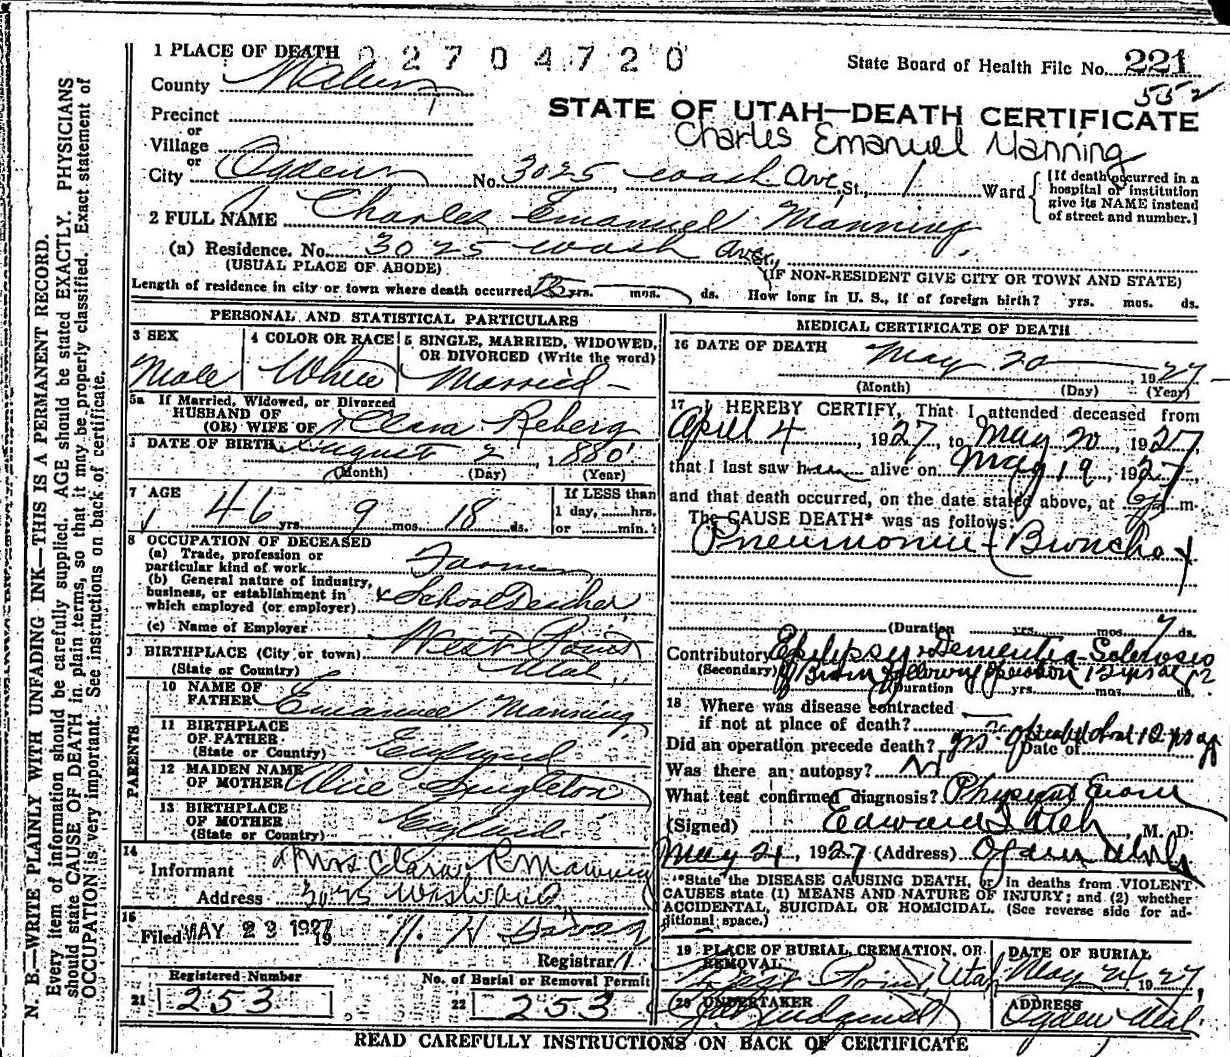 1 PLACE OF DEATH 02704720
State Board of Health File No. 221
County
552
STATE OF UTAH—DEATH CERTIFICATE
Precinct
or
Village
Charles Emanuel Manning
or
City Ogden No. 3025 Wash Ave St., 1 Ward
[If death occurred in a hospital or institution give its NAME instead of street and number.]
2 FULL NAME Charles Emanuel Manning
(a) Residence. No. 3025 Wash Ave St.,
(USUAL PLACE OF ABODE)
(IF NON-RESIDENT GIVE CITY OR TOWN AND STATE)
Length of residence in city or town where death occurred yrs. mos. ds. How long in U. S., if of foreign birth? yrs. mos. ds.
PERSONAL AND STATISTICAL PARTICULARS
3 SEX
Male
4 COLOR OR RACE
White
5 SINGLE, MARRIED, WIDOWED,
OR DIVORCED (Write the word)
Married
5a If Married, Widowed, or Divorced
HUSBAND OF
(OR) WIFE OF Clara Reberg
DATE OF BIRTH August 2, 1880
(Month) (Day) (Year)
7 AGE
46 yrs. 9 mos. 18 ds.
If LESS than
1 day, hrs.
or min.
8 OCCUPATION OF DECEASED
(a) Trade, profession or
particular kind of work Farmer
(b) General nature of industry,
business, or establishment in
which employed (or employer) & School Teacher
(c) Name of Employer
9 BIRTHPLACE (City or town) West Point
(State or Country) Utah
PARENTS
10 NAME OF
FATHER Emanuel Manning
11 BIRTHPLACE
OF FATHER
(State or Country) England
12 MAIDEN NAME
OF MOTHER Alice Singleton
13 BIRTHPLACE
OF MOTHER
(State or Country) England
14
Informant Mrs Clara R Manning
Address 3025 Wash Ave
15
Filed MAY 23 1927 19
Registrar
Registered Number
21 253
No. of Burial or Removal Permit
22 253
MEDICAL CERTIFICATE OF DEATH
16 DATE OF DEATH May 20, 1927
(Month) (Day) (Year)
17 I HEREBY CERTIFY, That I attended deceased from
April 4, 1927, to May 20, 1927
that I last saw him alive on May 19, 1927
and that death occurred, on the date stated above, at m.
The CAUSE DEATH* was as follows:
Pneumonia (Broncho)
(Duration yrs. mos. 7 ds.
Contributory Epilepsy & Dementia Sclerosis
(Secondary) of Brain following operation 12 yrs
(Duration yrs. mos. ds.
18 Where was disease contracted
if not at place of death?
Did an operation precede death? yes Date of about 12 yrs ago
Was there an autopsy? No
What test confirmed diagnosis? Physical Exam
(Signed) Edward M. D.
May 21, 1927 (Address) Ogden Utah
*State the DISEASE CAUSING DEATH, or in deaths from VIOLENT
CAUSES state (1) MEANS AND NATURE OF INJURY; and (2) whether
ACCIDENTAL, SUICIDAL OR HOMICIDAL. (See reverse side for additional space.)
19 PLACE OF BURIAL, CREMATION, OR
REMOVAL
West Point, Utah
DATE OF BURIAL
May 24 1927,
20 UNDERTAKER
ADDRESS
Ogden Utah
READ CAREFULLY INSTRUCTIONS ON BACK OF CERTIFICATE
N. B.—WRITE PLAINLY WITH UNFADING INK—THIS IS A PERMANENT RECORD.
Every item of information should be carefully supplied. AGE should be stated EXACTLY. PHYSICIANS
should state CAUSE OF DEATH in plain terms, so that it may be properly classified. Exact statement of
OCCUPATION is very important. See instructions on back of certificate.